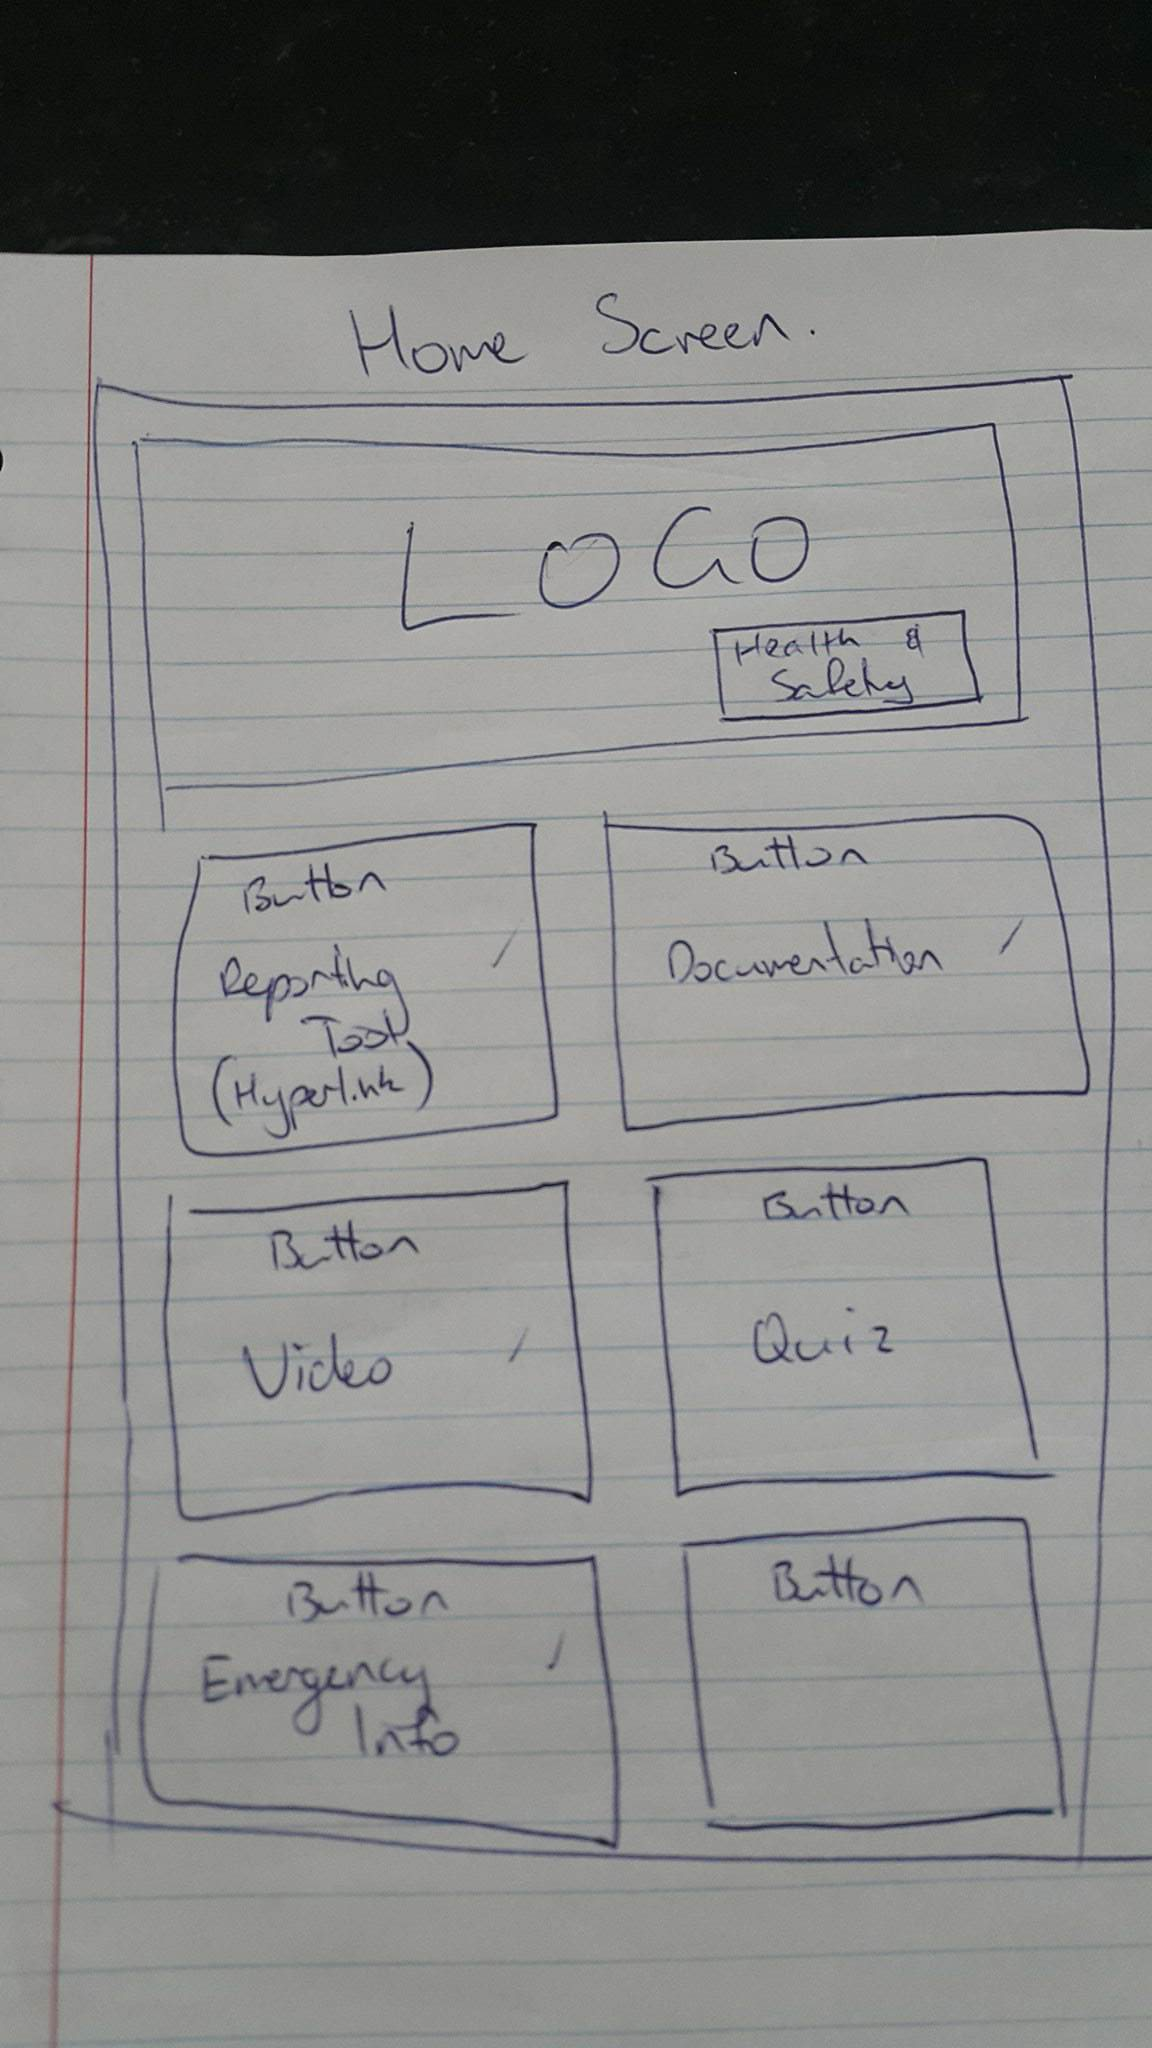 Home Screen.
LOGO
Health &
Safety
Button
Reporting
Tool
(Hyperlink)
Button
Documentation
Button
Video
Button
Quiz
Button
Emergency
Info
Button